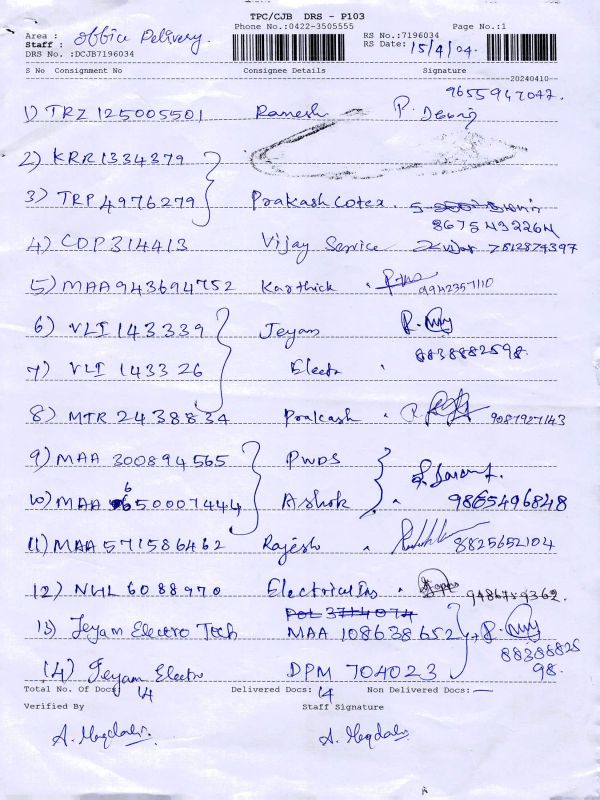 TPC/CJB DRS - P103
Phone No.:0422-3505555 Page No.:1
Area : Office Delivery.
Staff :
DRS No. :DCJB7196034
RS No.:7196034
RS Date: 15/4/24.
S No Consignment No Consignee Details Signature
20240410
9655947047.
1) TRZ 125005501 Ramesh P.
2) KRR 1334379
3) TRP 4976279 Prakash Cotex.
8675432264
4) COP 314413 Vijay Service 7812874397
5) MAA 943694752 Karthick 9942357110
6) VLI 143339 Jeyam
7) VLI 143326 Electro 8838882598.
8) MTR 2438834 Prakash 9087927143
9) MAA 300894565 PWDS
10) MAA 650007444 Ashok 9865496848
11) MAA 571586462 Rajesh 8825652104
12) NHL 6088970 Electrical Ins 9486759362.
POL 3714074
13) Jeyam Electro Tech MAA 108638652
88388825
98.
14) Jeyam Electro DPM 704023
Total No. Of Docs 14 Delivered Docs: 14 Non Delivered Docs: —
Verified By Staff Signature
A. A.